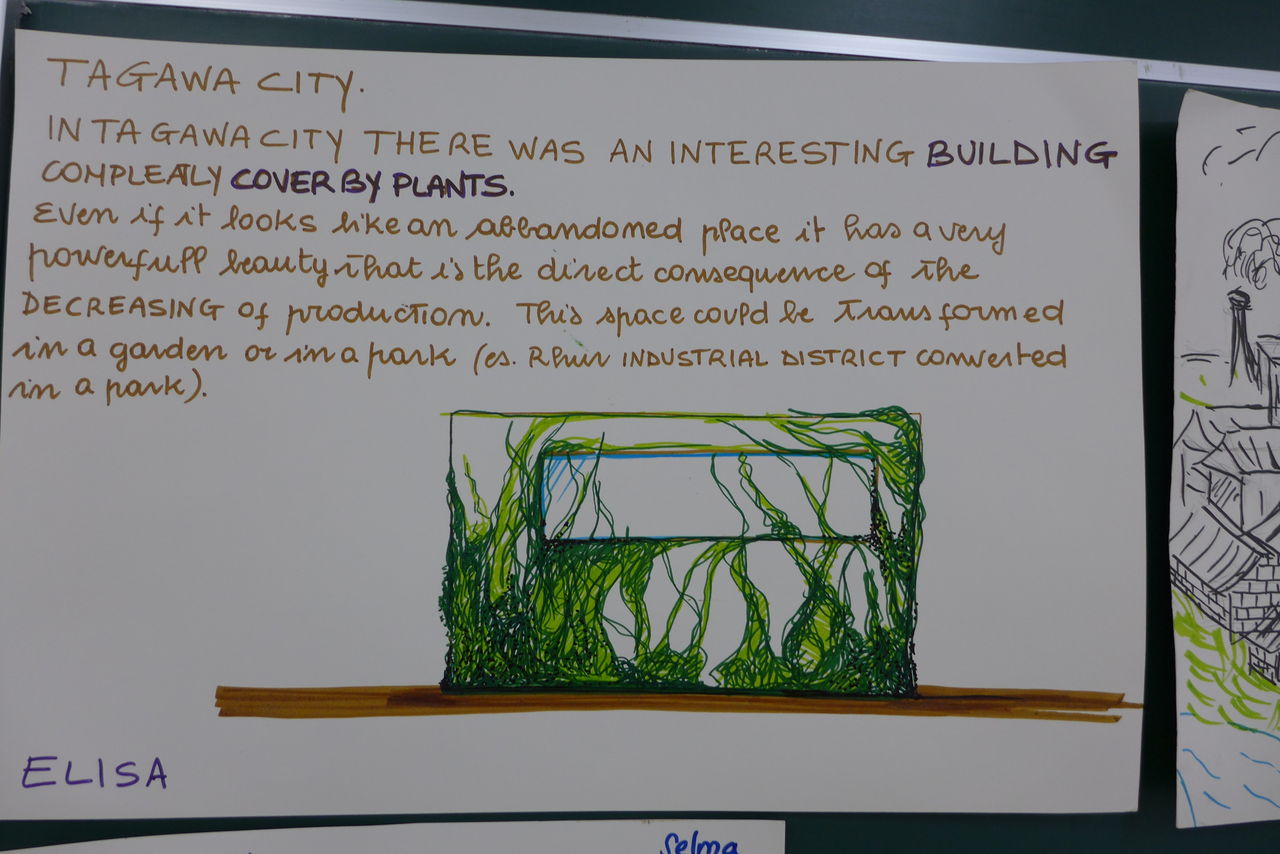 TAGAWA CITY.
IN TAGAWA CITY THERE WAS AN INTERESTING BUILDING
COMPLEATLY COVER BY PLANTS.
Even if it looks like an abbandoned place it has a very
powerfull beauty that is the direct consequence of the
DECREASING of production. This space could be transformed
in a garden or in a park (es. Rhur INDUSTRIAL DISTRICT converted
in a park).
ELISA
Selma